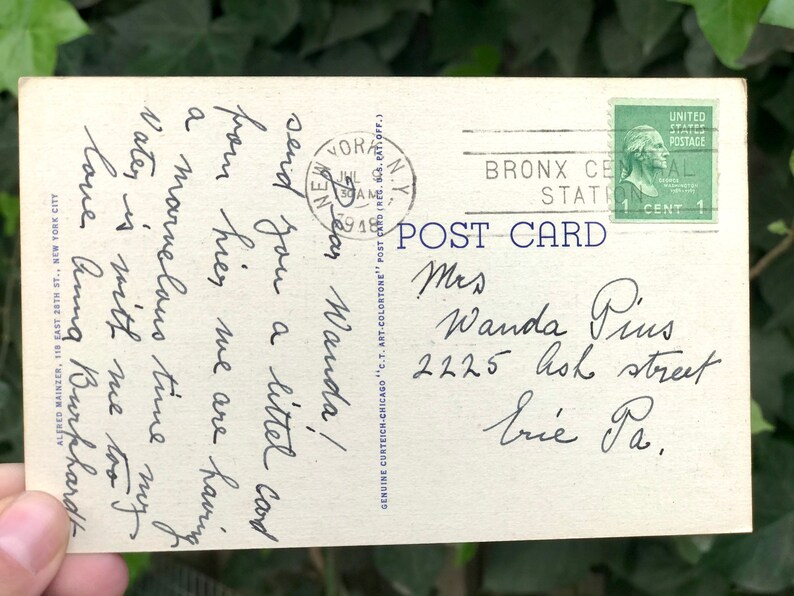 Dear Wanda!
send you a littel card
from hier, we are having
a marvelous time my
Vater is with me too
love Anna Burkhardt
ALFRED MAINZER, 118 EAST 28TH ST., NEW YORK CITY
GENUINE CURTEICH-CHICAGO "C.T. ART-COLORTONE" POST CARD (REG. U.S. PAT. OFF.)
NEW YORK, N.Y.
JUL
30 AM
1948
BRONX CENTRAL
STATION
UNITED
STATES
POSTAGE
GEORGE
WASHINGTON
1789-1797
1 CENT 1
POST CARD
Mrs
Wanda Pius
2225 Ash street
Erie Pa.